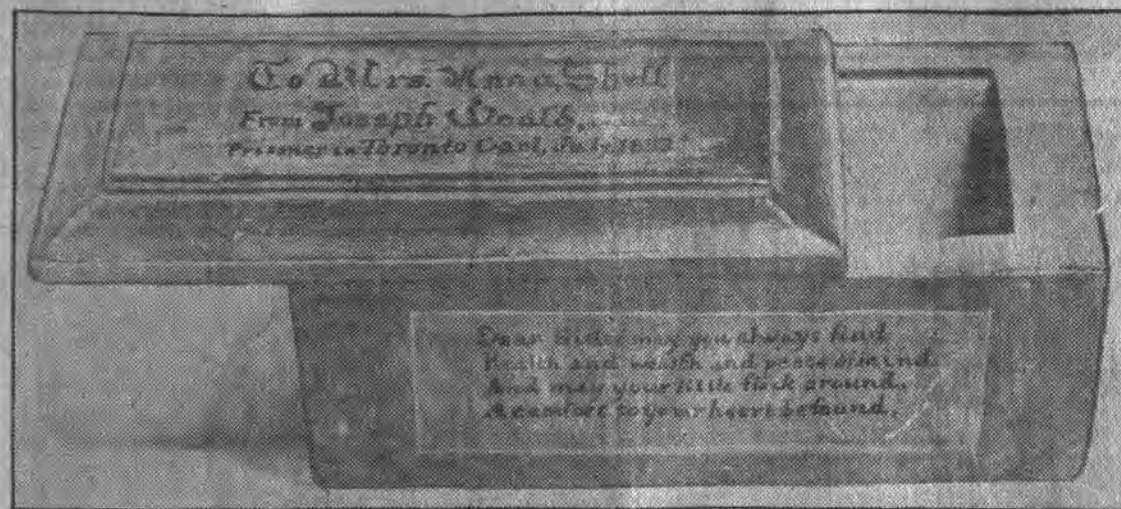 To Mrs. Anna Shell
From Joseph
Prisoner in Toronto Gaol, July
Dear Sister may you always find
Health and wealth and peace of mind
And may your little flock around,
A comfort to your heart be found,